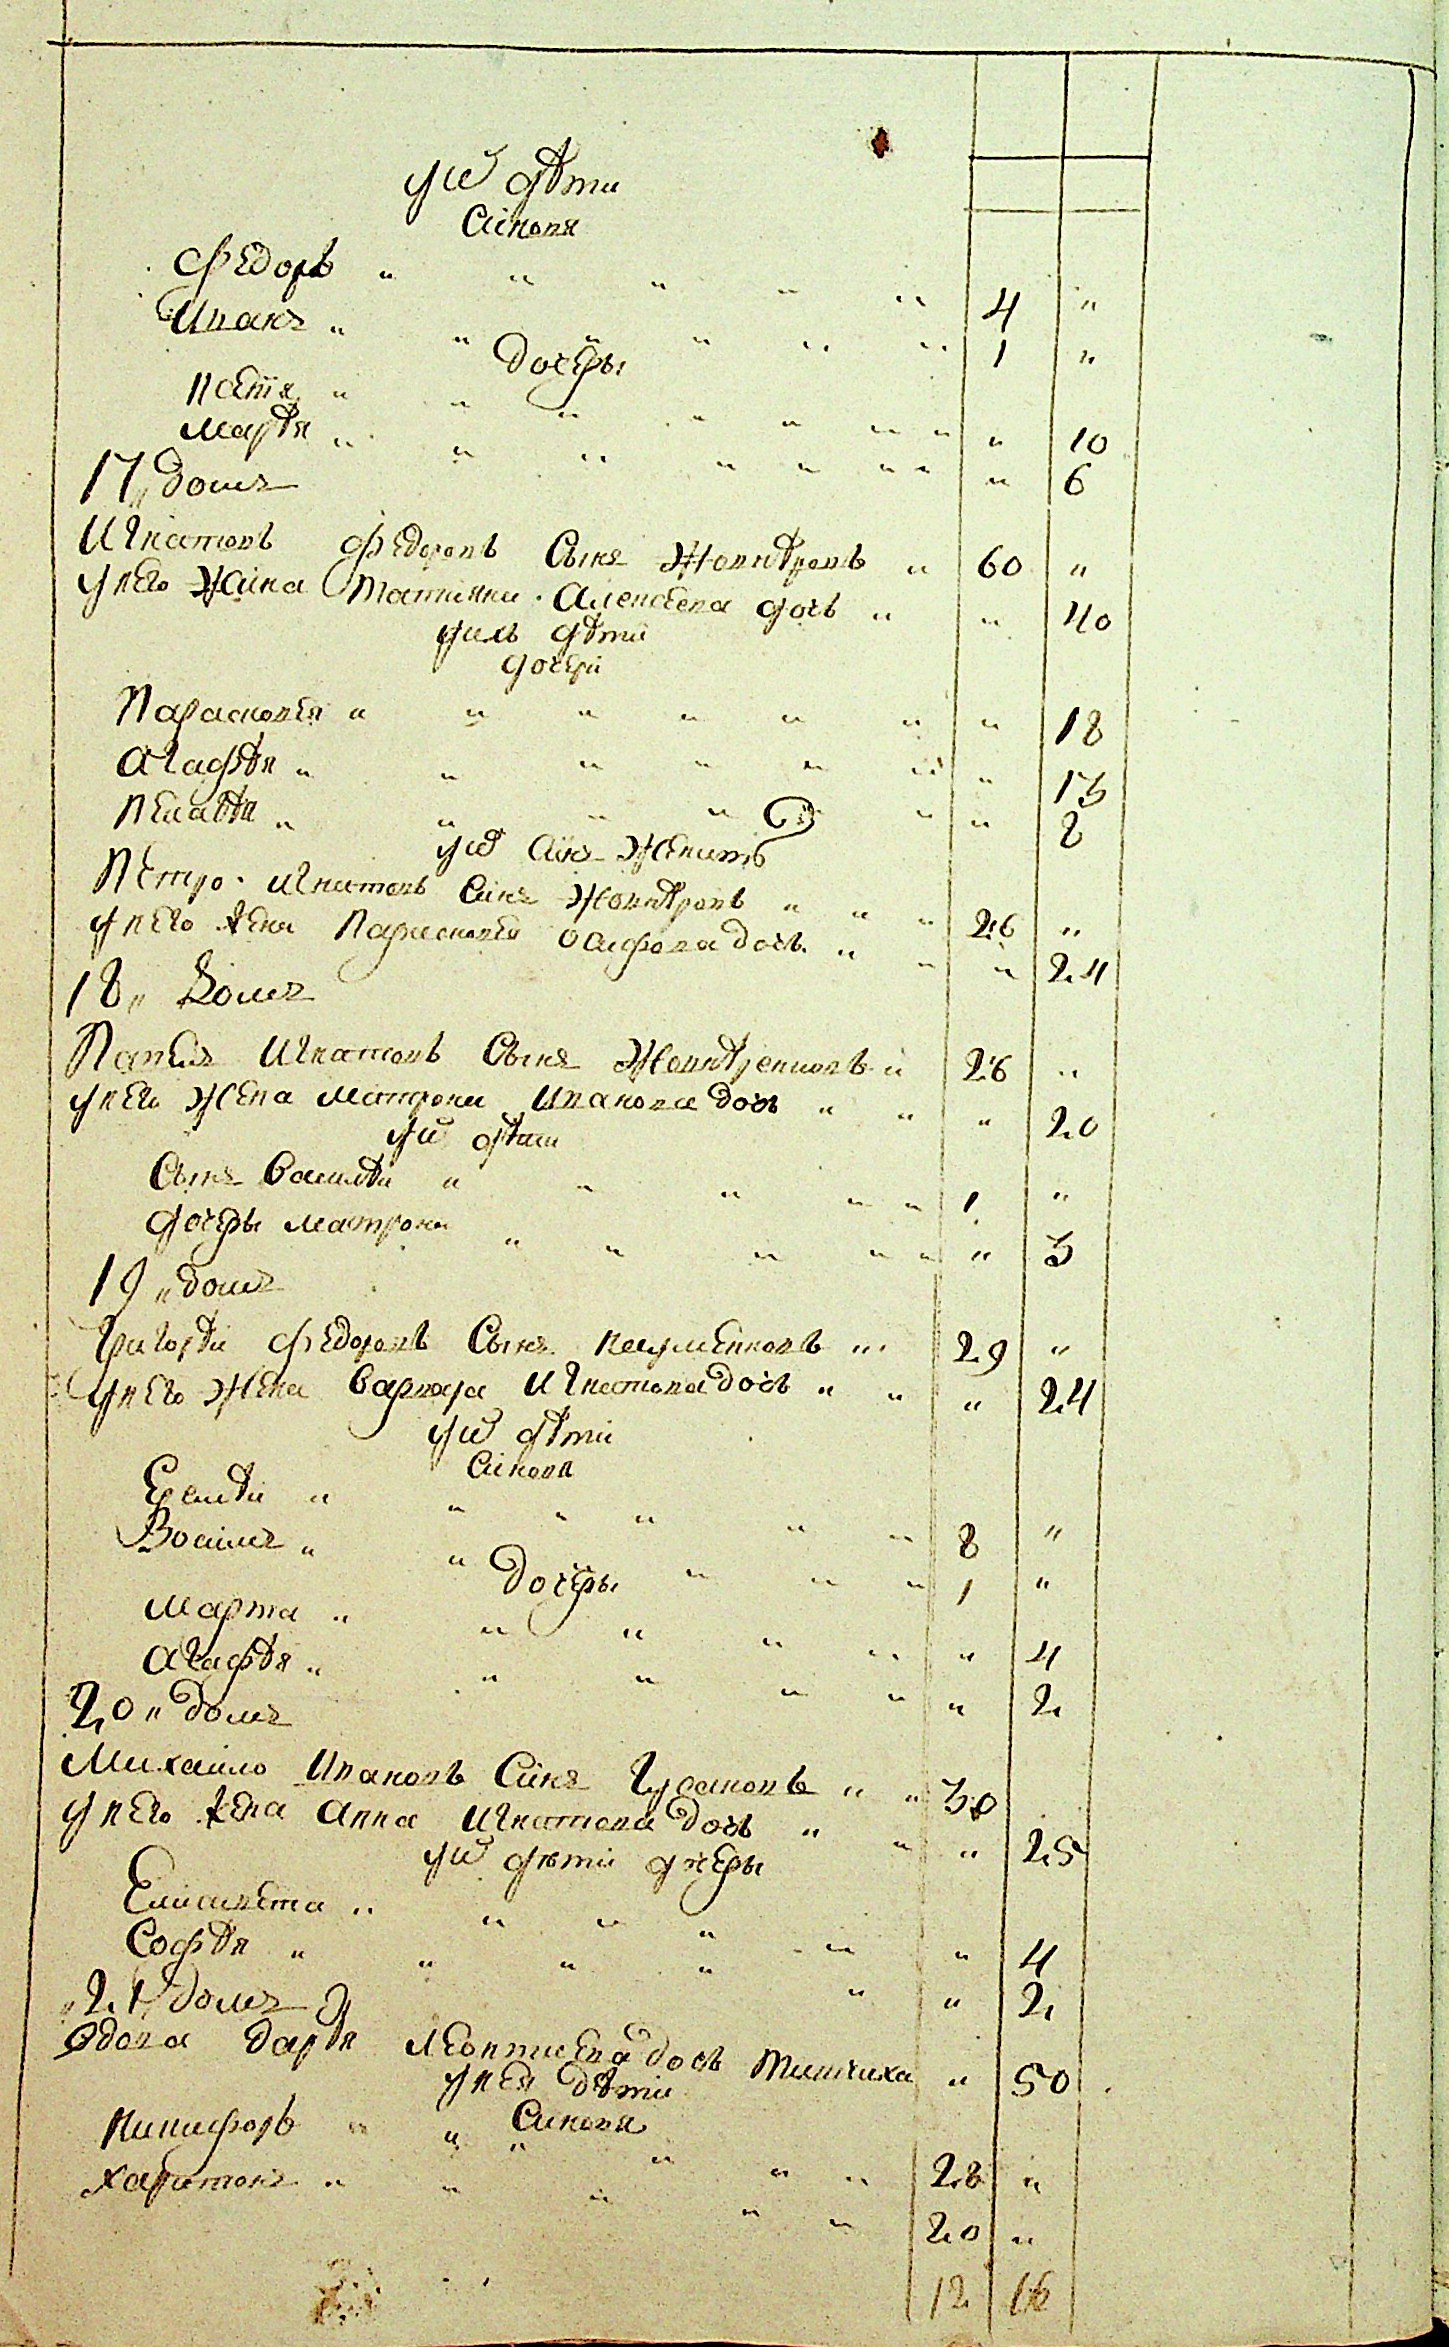 у них дѣти
Синовя
Федоръ " " " " " 4 "
Иванъ " " " " " " 1 "
дочеры
" " " " " " " " 10
Марѣя " " " " " " " " 6
17 " домъ
Игнатовъ Федоровъ Сынъ " 60 "
у него жена Татияна Алексѣева дочь " " 40
у них дѣти
дочери
Парасковея " " " " " " " 18
Агафѣя " " " " " " " 13
Пелагѣя " " " " " " 8
у них Синъ женитъ
Петро Игнатовъ Синъ " " " 26 "
у него жена Парасковея дочь " " " 24
18 " Домъ
Игнатовъ Сынъ " 26 "
у него жена Матрона Иванова дочь " " " 20
у них дѣти
Сынъ Василѣй " " " " " 1 "
дочеры Матрона " " " " " " 3
19 " домъ
Григорѣй Федоровъ Сынъ " 29 "
у него жена Варвара Игнатова дочь " " " 24
у них дѣти
Синовя
" " " " " " 8 "
" " " " " 1 "
дочеры
Марта " " " " " " 4
Агафѣя " " " " " " 2
20 " домъ
Михайло Ивановъ Синъ Гусановъ " " 30
у него жена Анна Игнатова дочь " " " 25
у них дѣти дочеры
Елисавета " " " " " " 4
Софѣя " " " " " " 2
" 21 " домъ
Вдова Дарѣя Леонтиева дочь " 50
у нея дѣти
Синовя
Никифоръ " " " " " " 28 "
Харитонъ " " " " " 20 "
12 16